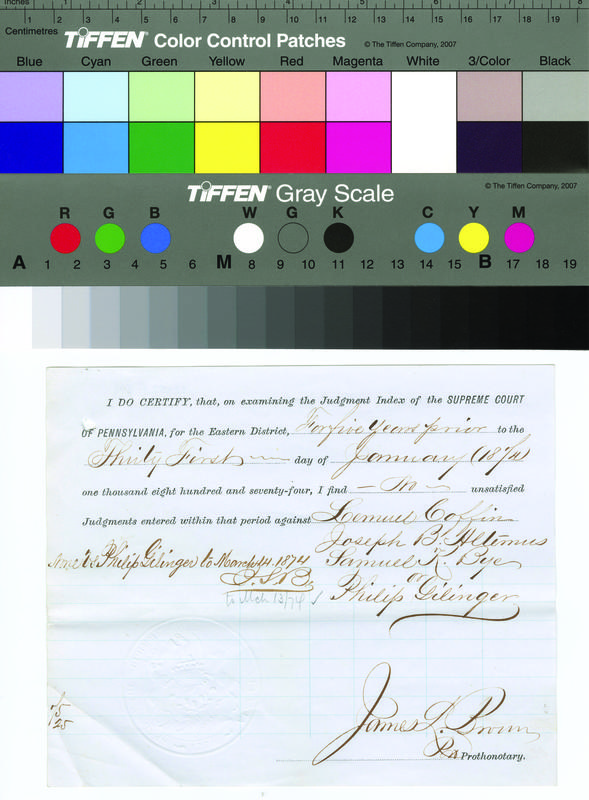 Inches 1 2 3 4 5 6 7 8
Centimetres 1 2 3 4 5 6 7 8 9 10 11 12 13 14 15 16 17 18 19
TIFFEN® Color Control Patches © The Tiffen Company, 2007
Blue Cyan Green Yellow Red Magenta White 3/Color Black
TIFFEN® Gray Scale © The Tiffen Company, 2007
R G B W G K C Y M
A 1 2 3 4 5 6 M 8 9 10 11 12 13 14 15 B 17 18 19
I DO CERTIFY, that, on examining the Judgment Index of the SUPREME COURT
OF PENNSYLVANIA, for the Eastern District, For five Years prior to the
Thirty First day of January (1874)
one thousand eight hundred and seventy-four, I find - No - unsatisfied
Judgments entered within that period against Lemuel Coffin
Joseph B. Altemus
None vs Philip Gilinger to March 14. 1874 Samuel K. Bye
or
to Mch 13/74 Philip Gilinger
75
25
James L. Brown
Prothonotary.